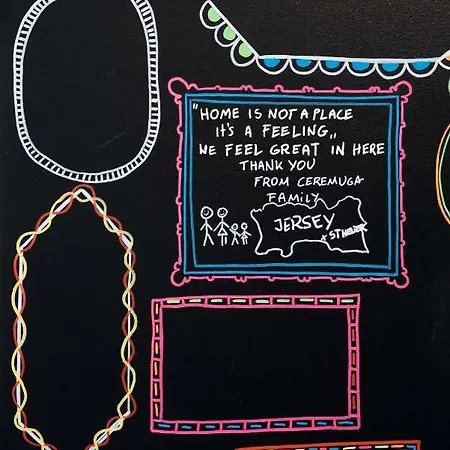 "HOME IS NOT A PLACE
IT'S A FEELING,,
WE FEEL GREAT IN HERE
THANK YOU
FROM CEREMUGA
FAMILY
JERSEY
ST HELIER